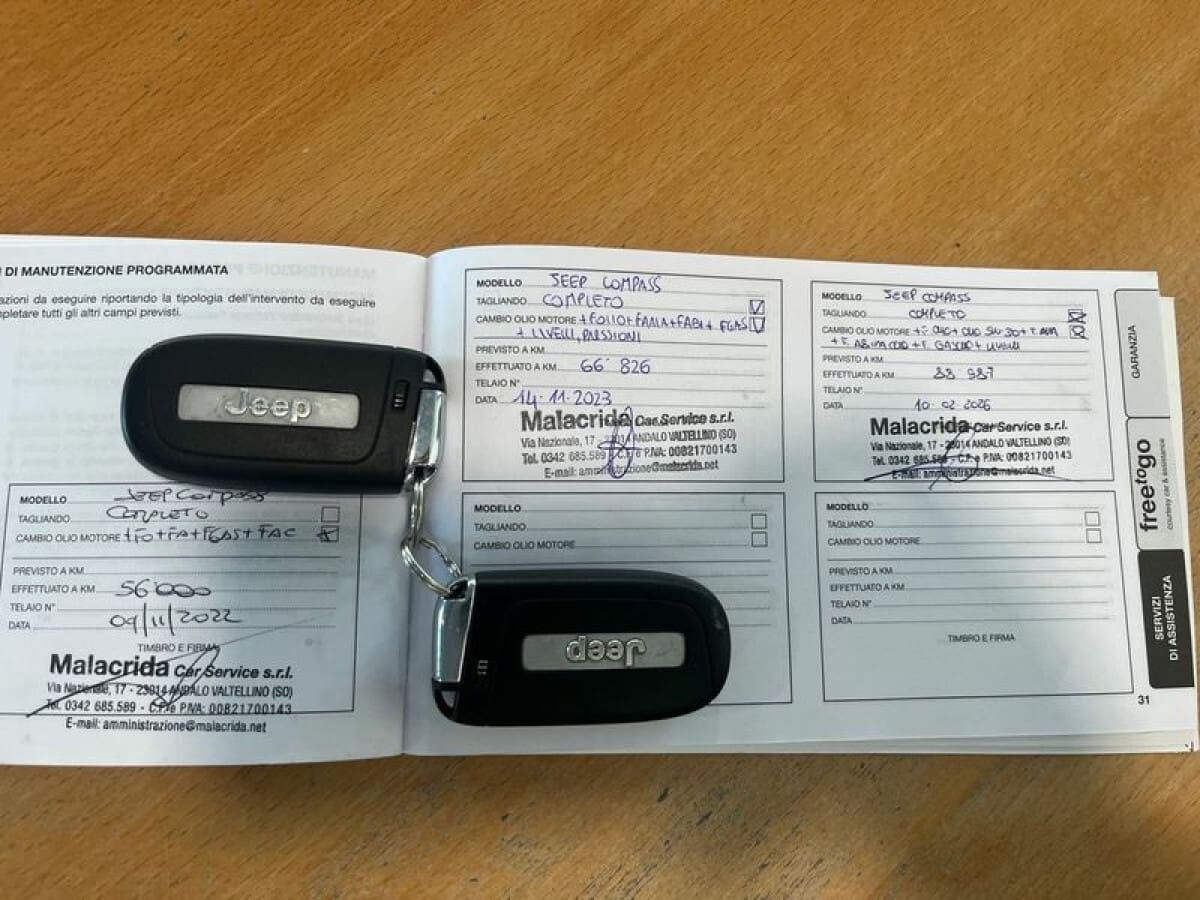 DI MANUTENZIONE PROGRAMMATA
azioni da eseguire riportando la tipologia dell'intervento da eseguire
pletare tutti gli altri campi previsti.
Jeep
MODELLO JEEP Compass
TAGLIANDO COMPLETO
CAMBIO OLIO MOTORE +FO+FA+FGAS+FAC
PREVISTO A KM
EFFETTUATO A KM 56'000
TELAIO N°
DATA 09/11/2022
TIMBRO E FIRMA
Malacrida Car Service s.r.l.
Via Nazionale, 17 - 23014 ANDALO VALTELLINO (SO)
Tel. 0342 685.589 - C.F. e P.IVA: 00821700143
E-mail: amministrazione@malacrida.net
MODELLO JEEP COMPASS
TAGLIANDO COMPLETO
CAMBIO OLIO MOTORE +FOLIO+FARIA+FABI+ FGAS
+ LIVELLI, PRESSIONI
PREVISTO A KM
EFFETTUATO A KM 66'826
TELAIO N°
DATA 14-11-2023
Malacrida Car Service s.r.l.
Via Nazionale, 17 - 23014 ANDALO VALTELLINO (SO)
Tel. 0342 685.589 - C.F. e P.IVA: 00821700143
E-mail: amministrazione@malacrida.net
MODELLO
TAGLIANDO
CAMBIO OLIO MOTORE
Jeep
MODELLO JEEP COMPASS
TAGLIANDO COMPLETO
CAMBIO OLIO MOTORE
PREVISTO A KM
EFFETTUATO A KM
TELAIO N°
DATA 10-02-2026
Malacrida Car Service s.r.l.
Via Nazionale, 17 - 23014 ANDALO VALTELLINO (SO)
Tel. 0342 685.589 - C.F. e P.IVA: 00821700143
E-mail: amministrazione@malacrida.net
MODELLO
TAGLIANDO
CAMBIO OLIO MOTORE
PREVISTO A KM
EFFETTUATO A KM
TELAIO N°
DATA
TIMBRO E FIRMA
GARANZIA
freetogo
courtesy car & assistance
SERVIZI
DI ASSISTENZA
31